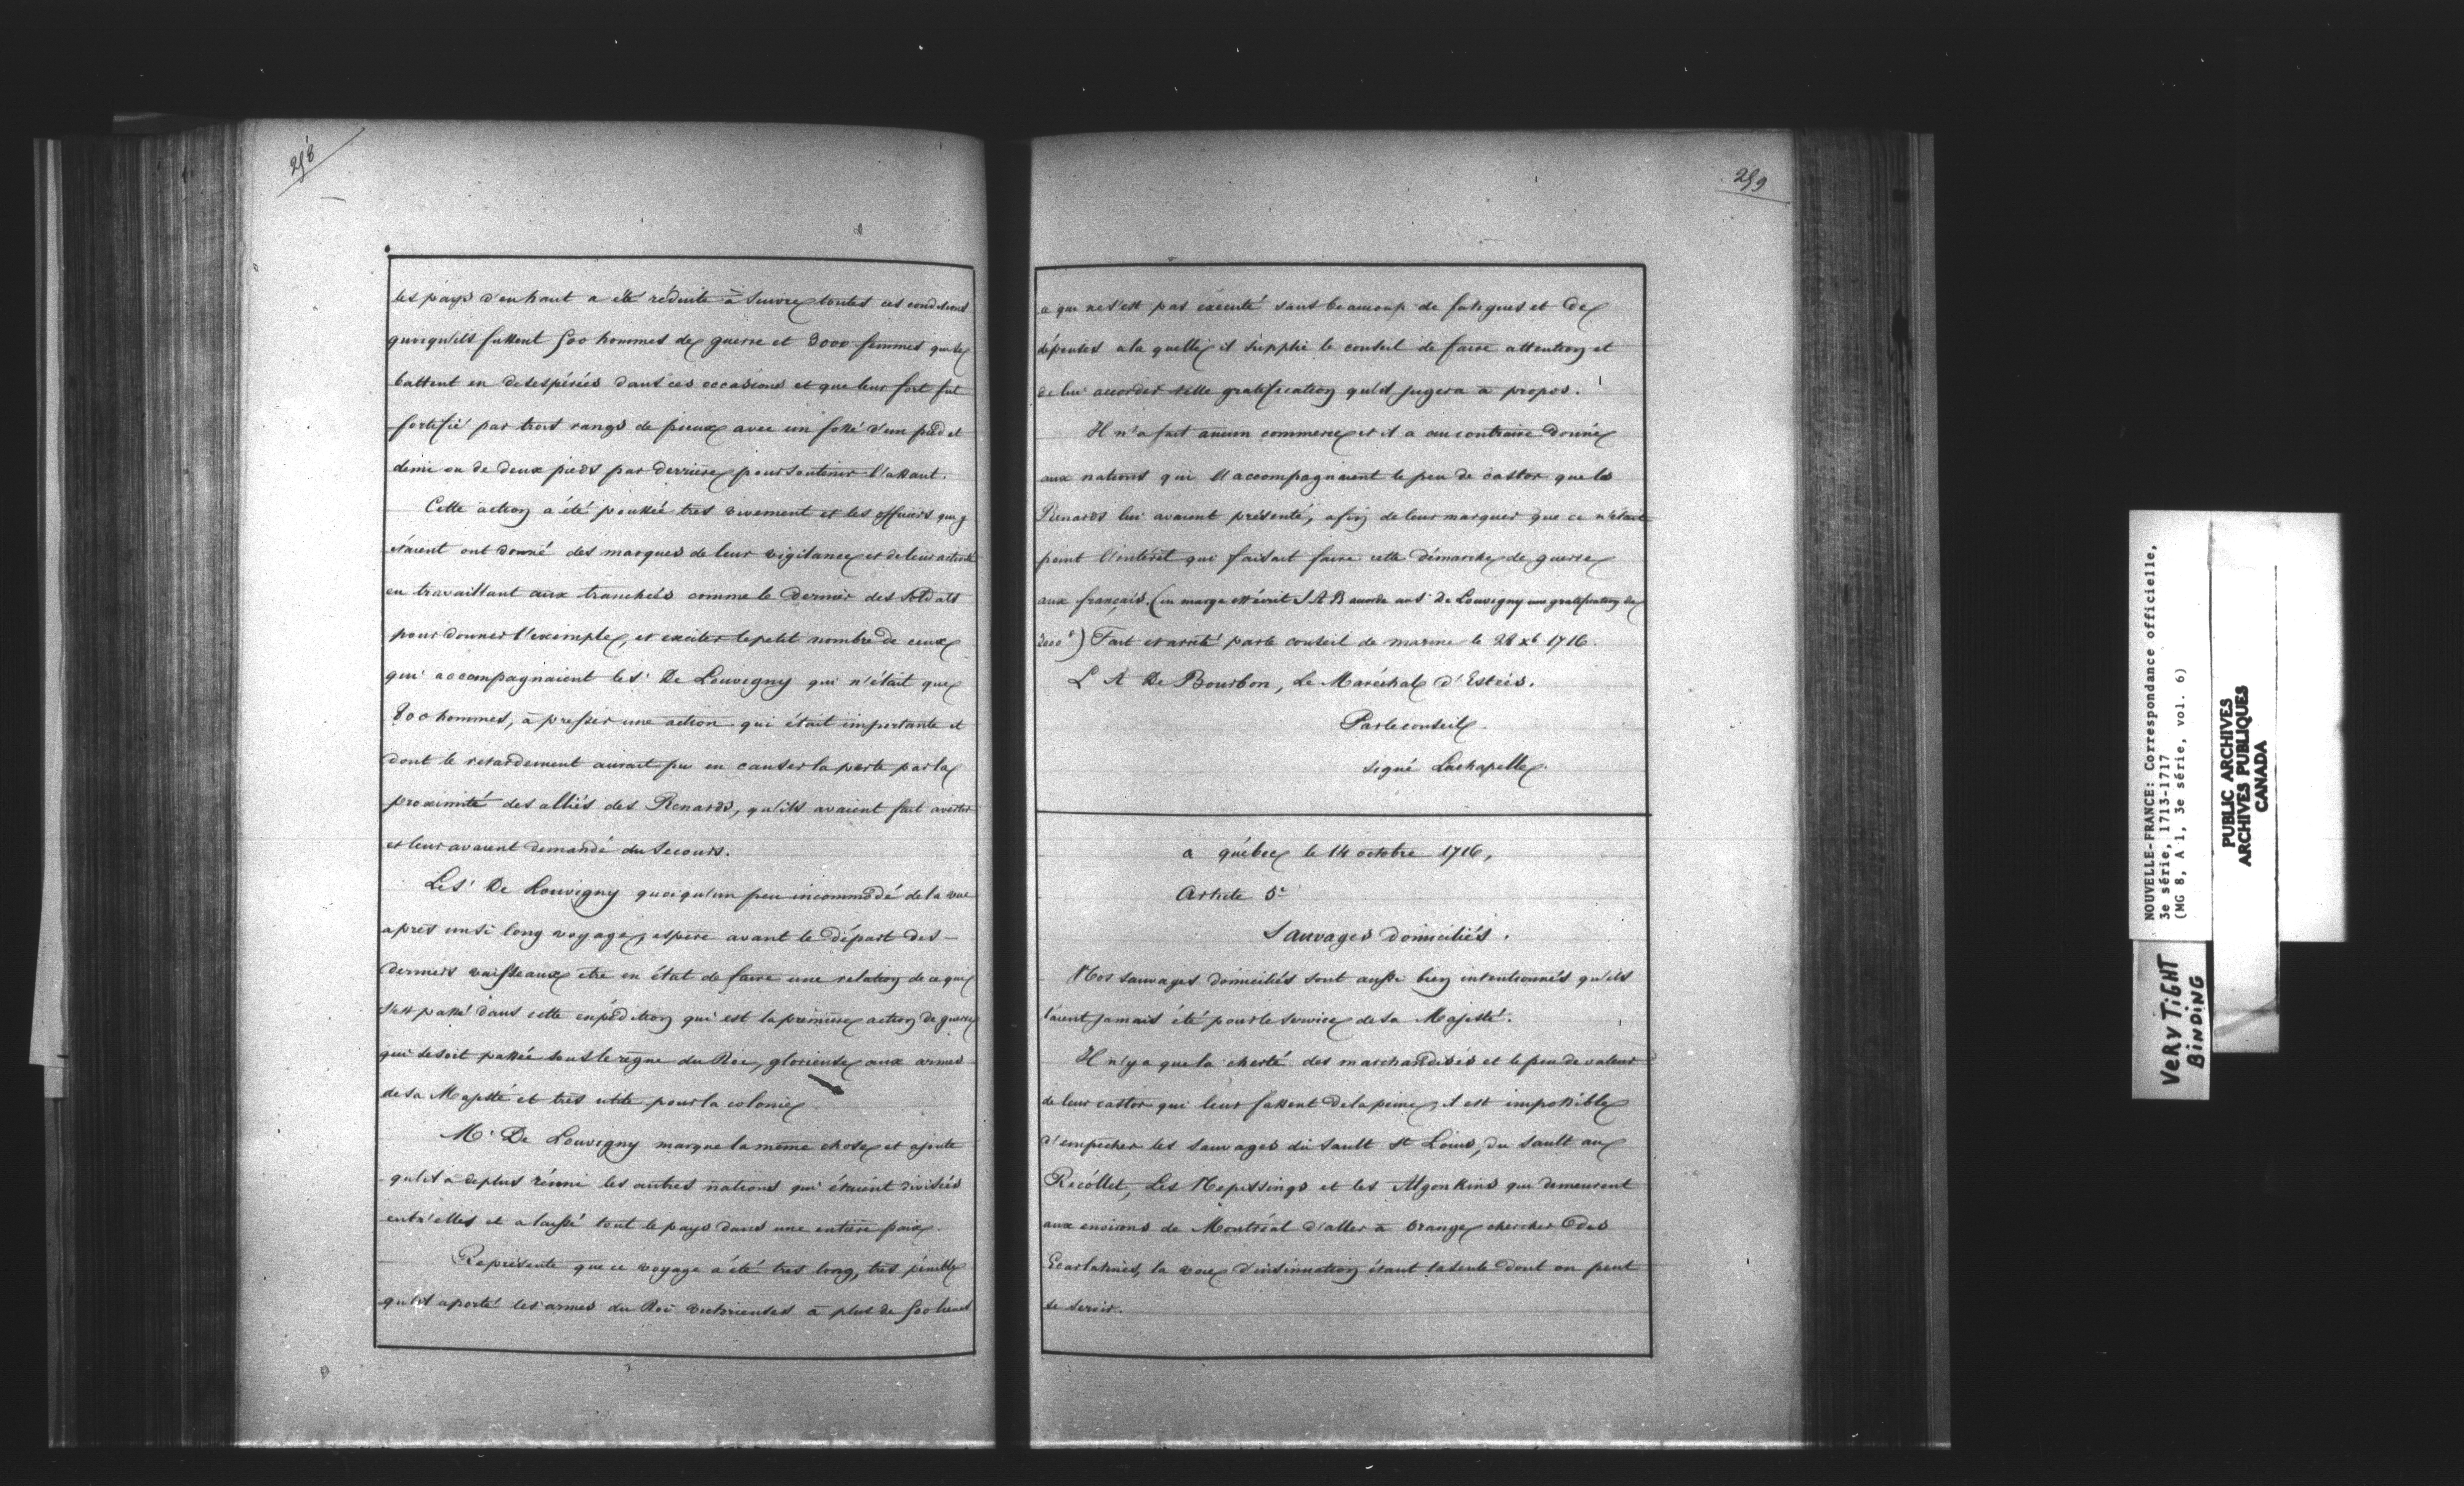 258
les pays d'en haut a été réduite à suivre toutes ces conditions
quoiqu'ils fussent 500 hommes de guerre et 3000 femmes qui se
battent en desespérées dans ces occasions et que leur fort fut
fortifié par trois rangs de pieux avec un fossé d'un pied et
demi ou de deux pieds par derriere pour soutenir l'assaut.
Cette action a été poussée tres vivement et les officiers qui y
étaient ont donné des marques de leur vigilance et de leur activité
en travaillant aux tranchées comme le dernier des soldats
pour donner l'exemple, et exciter le petit nombre de ceux
qui accompagnaient le S.r De Louvigny qui n'était que
800 hommes, à presser une action qui était importante et
dont le retardement aurait pu en causer la perte par la
proximité des alliés des Renards, qu'ils avaient fait avertir
et leur avaient demandé du secours.
Le S.r De Louvigny quoiqu'un peu incommodé de la vue
apres un si long voyage, espere avant le départ des
derniers vaisseaux etre en état de faire une relation de ce qui
s'est passé dans cette expédition qui est la premiere action de guerre
qui se soit passée sous le regne du Roi, glorieuse aux armes
de Sa Majesté et tres utile pour la colonie
M.r De Louvigny marque la même chose et ajoute
qu'il a de plus réuni les autres nations qui étaient divisées
entr'elles et a laissé tout le pays dans une entiere paix.
Représente que ce voyage a été tres long, tres pénible
qu'il a porté les armes du Roi victorieuses à plus de 500 lieues
259
ce qui ne s'est pas executé sans beaucoup de fatigues et de
dépenses a la quelle il supplie le conseil de faire attention et
de lui accorder telle gratification qu'il jugera à propos.
Il n'a fait aucun commerce et il a au contraire donné
aux nations qui l'accompagnaient le peu de castor que les
Renards lui avaient présenté, afin de leur marquer que ce n'était
point l'intérêt qui faisait faire cette démarche de guerre
aux français. (en marge est écrit S A R accorde au S.r De Louvigny une gratification de
3000#) Fait et arrêté par le conseil de marine le 28 xb 1716.
L A De Bourbon, Le Maréchal d'Estrées.
Par le conseil
signé Lachapelle.
a québec le 14 octobre 1716,
Article 5e
Sauvages domiciliés.
Nos sauvages domiciliés sont aussi bien intentionnés qu'ils
l'aient jamais été pour le service de Sa Majesté.
Il n'y a que la cherté des marchandises et le peu de valeur
de leur castor qui leur fassent de la peine, il est impossible
d'empecher les sauvages du Sault St Louis, du Sault aux
Récollet, Les Nepissings et les Algonkins qui demeurent
aux environs de Montréal d'aller à Orange chercher des
Ecarlatines, la voie d'insinuation étant la seule dont on peut
se servir.
NOUVELLE-FRANCE: Correspondance officielle,
3e série, 1713-1717
(MG 8, A 1, 3e série, vol. 6)
PUBLIC ARCHIVES
ARCHIVES PUBLIQUES
CANADA
VERY TiGHT
BiNDiNG